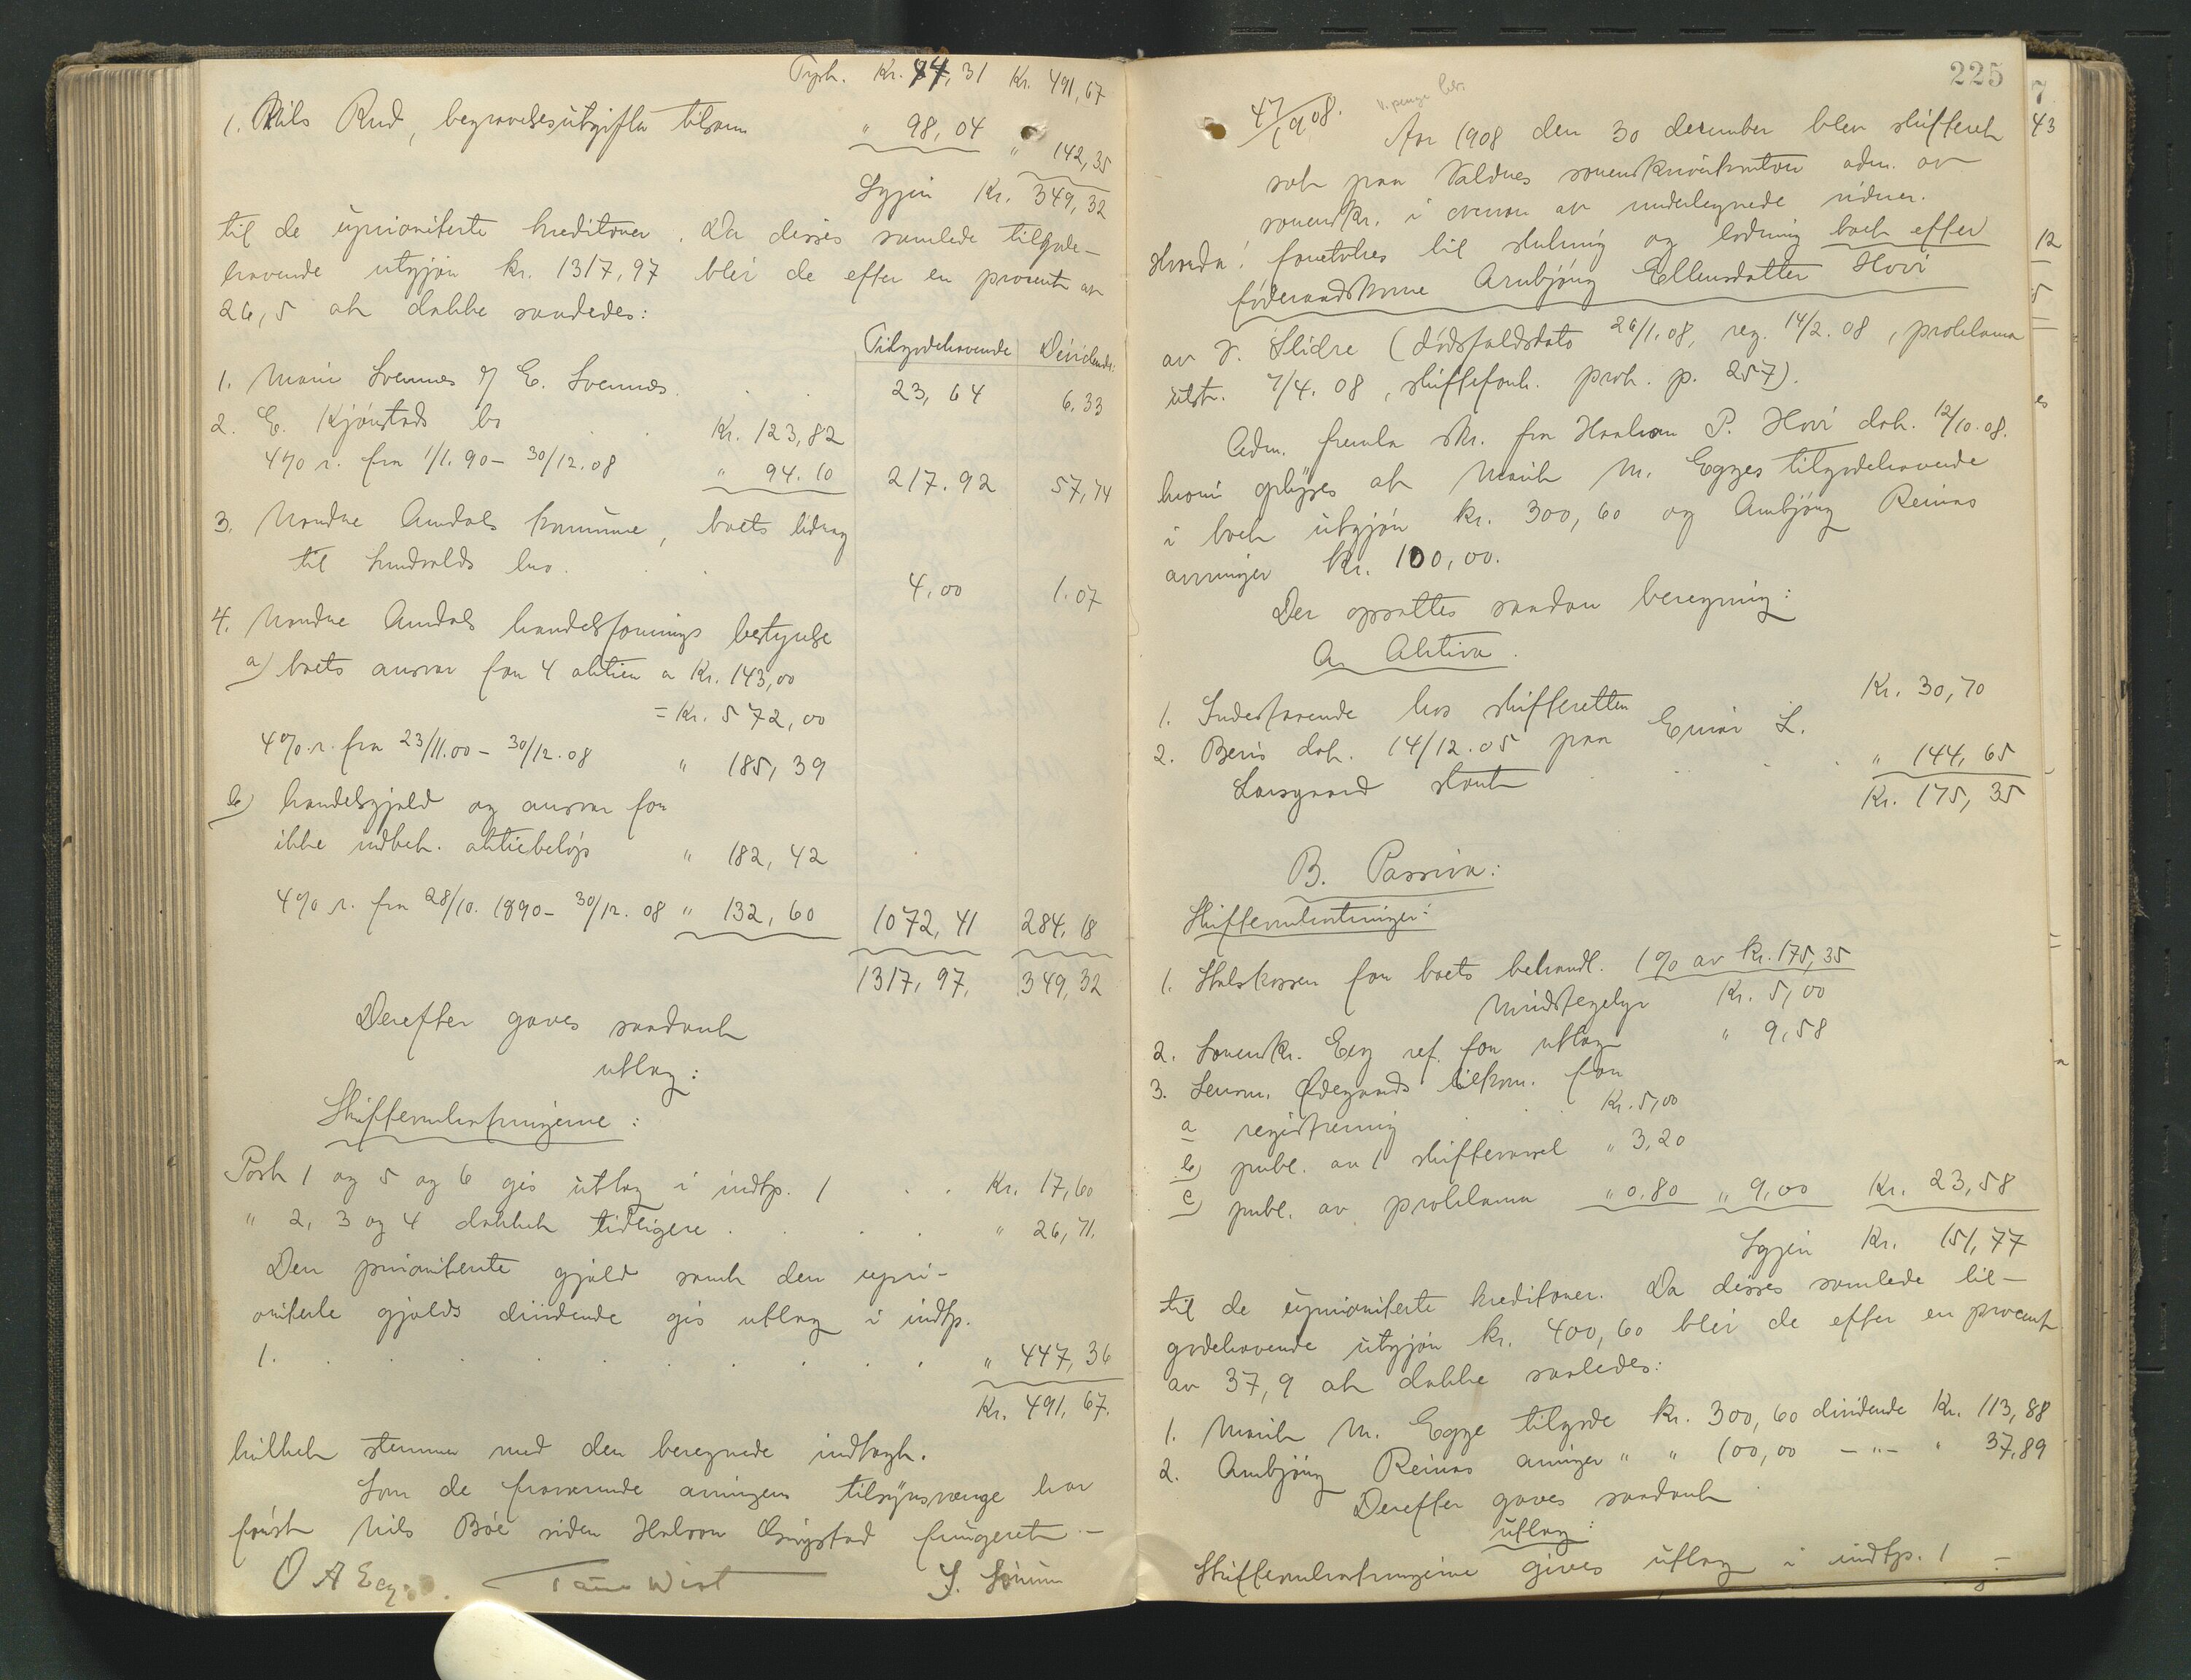 Tpsk. Kr. 44,31 Kr. 491,67
1. Nils Rud, begravelsesutgifter tilsam " 98,04
" 142,35
Igjen Kr. 349,32
til de uprioriterte kreditorer. Da disses samlede tilgode-
havende utgjør kr. 1317,97 blir de efter en procent av
26,5 at dække saaledes:
Tilgodehavende Dividende:
1. Marie Svennes v/ E. Svennes. 23,64 6.33
2. E. Kjønstads bo Kr. 123,82
4% r. fra 1/1.90 – 30/12.08 " 94.10 217.92 57,74
3. Nordre Aurdals kommune, boets bidrag
til hundvalds bro. 4,00 1.07
4. Nordre Aurdals handelsforenings bestyrelse
a) boets ansvar for 4 aktier a Kr. 143,00
= Kr. 572,00
4% r. fra 23/11.00 – 30/12.08 " 185,39
b) handelsgjæld og ansvar for
ikke indbet. aktiebeløp " 182,42
4% r. fra 28/10. 1890 – 30/12. 08 " 132,60 1072,41 284,18
1317,97. 349,32
Derefter gaves saadant
utlæg:
Skifteomkostningerne:
Post 1 og 5 og 6 gis utlæg i indtp. 1 Kr. 17,60
" 2, 3 og 4 dækket tidligere " 26,71.
Den prioriterte gjæld samt den upri-
oriterte gjælds dividende gis utlæg i indtp.
1. " 447,36
Kr. 491,67.
hvilket stemmer med den beregnede indtægt.
Som de fraværende arvingers tilsynsværge har
først Nils Bøe siden Halvor fungeret. –
O A Eeg.
225
47/1908.
Aar 1908 den 30 december blev skifteret
sat paa Valdres sorenskriverkontor adm. av
sorenskr. i overvær av underlegnede vidner.
Hvorda: foretokes til slutning og lodning boet efter
føderaadskone Arnbjørg Ellensdatter Hovi
av V. Slidre (dødsfaldsdato 26/1.08, reg. 14/2.08, proklama
utst. 7/4.08, skifteforh. prot. p. 257).
Adm. fremla skr. fra Haakon P. Hovi dat. 12/10.08.
hvori oplyses at Marit M. Egges tilgodehavende
i boet utgjør kr. 300,60 og Arnbjørg Reinas
arvinger kr. 100,00.
Der opsattes saadan beregning:
A. Aktiva.
1. Indestaaende hos skifteretten Kr. 30,70
2. Bevis dat. 14/12.05 paa Einar L.
Larsgaard stort " 144,65
Kr. 175,35
B. Passiva:
Skifteomkostninger:
1. Statskassen for boets behandl. 1% av kr. 175,35
Mindstegebyr Kr. 5,00
2. Sorenskr. Eeg ref. for utlæg " 9,58
3. Lensm. Ødegaards tilkom. for
a registrering Kr. 5,00
b) publ. av 1 skiftevarsel " 3,20
c) publ. av proklama " 0,80 " 9,00 Kr. 23,58
Igjen Kr. 151,77
til de uprioriterte kreditorer. Da disses samlede til-
godehavende utgjør kr. 400,60 blir de efter en procent
av 37,9 at dække saaledes:
1. Marit M. Egge tilgode kr. 300,60 dividende Kr. 113,88
2. Arnbjørg Reinas arvinger " " 100,00 – " – " 37,89
Derefter gaves saadant
utlæg:
Skifteomkostningerne gives utlæg i indtp. 1